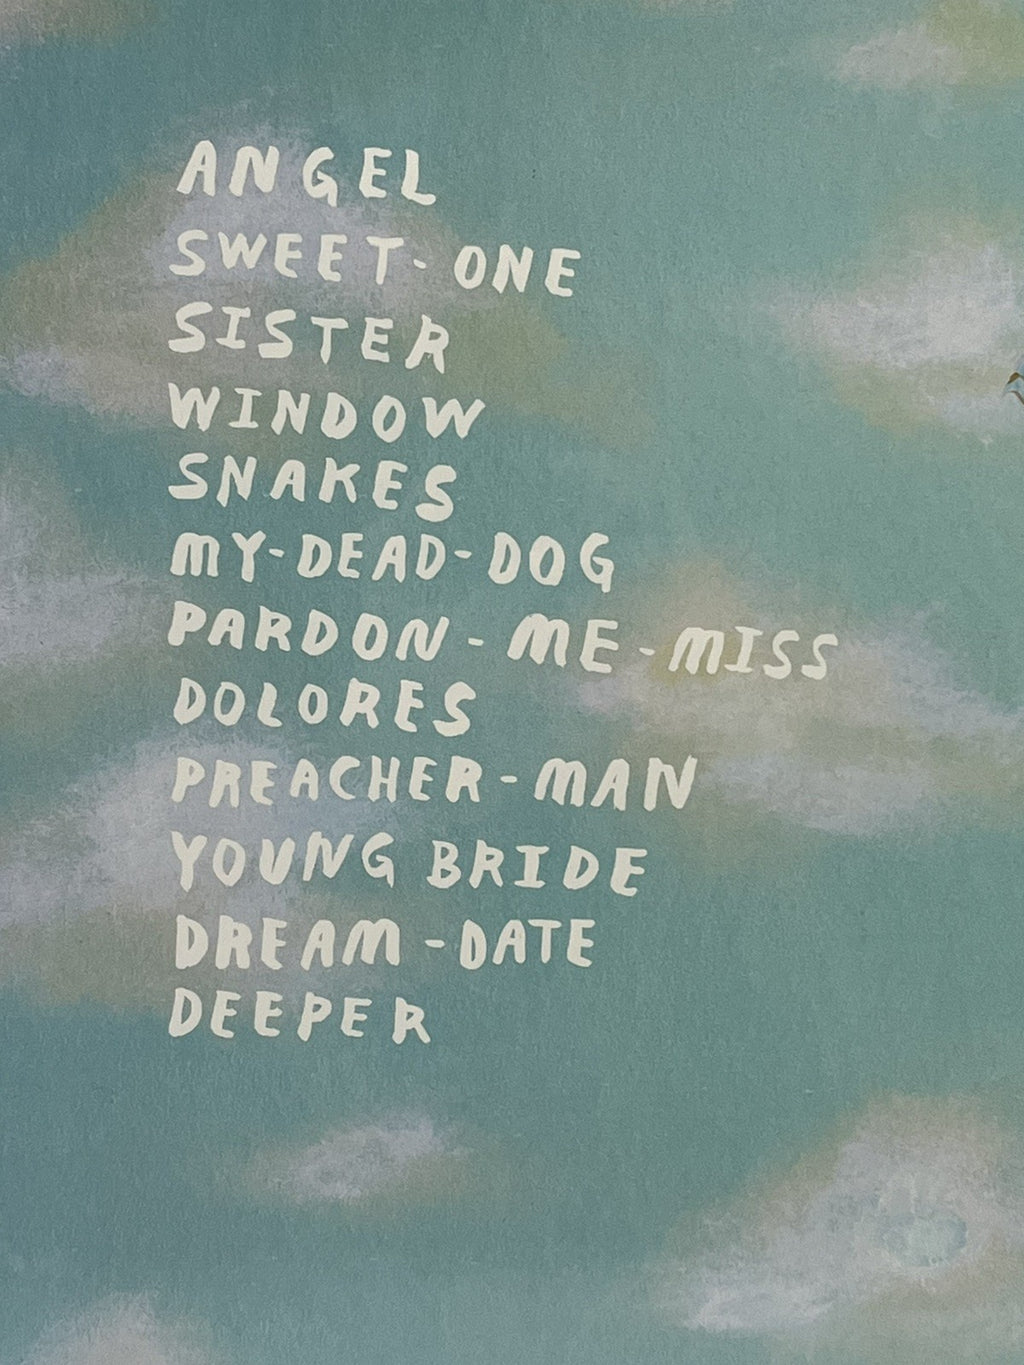 ANGEL
SWEET-ONE
SISTER
WINDOW
SNAKES
MY-DEAD-DOG
PARDON-ME-MISS
DOLORES
PREACHER-MAN
YOUNG BRIDE
DREAM-DATE
DEEPER